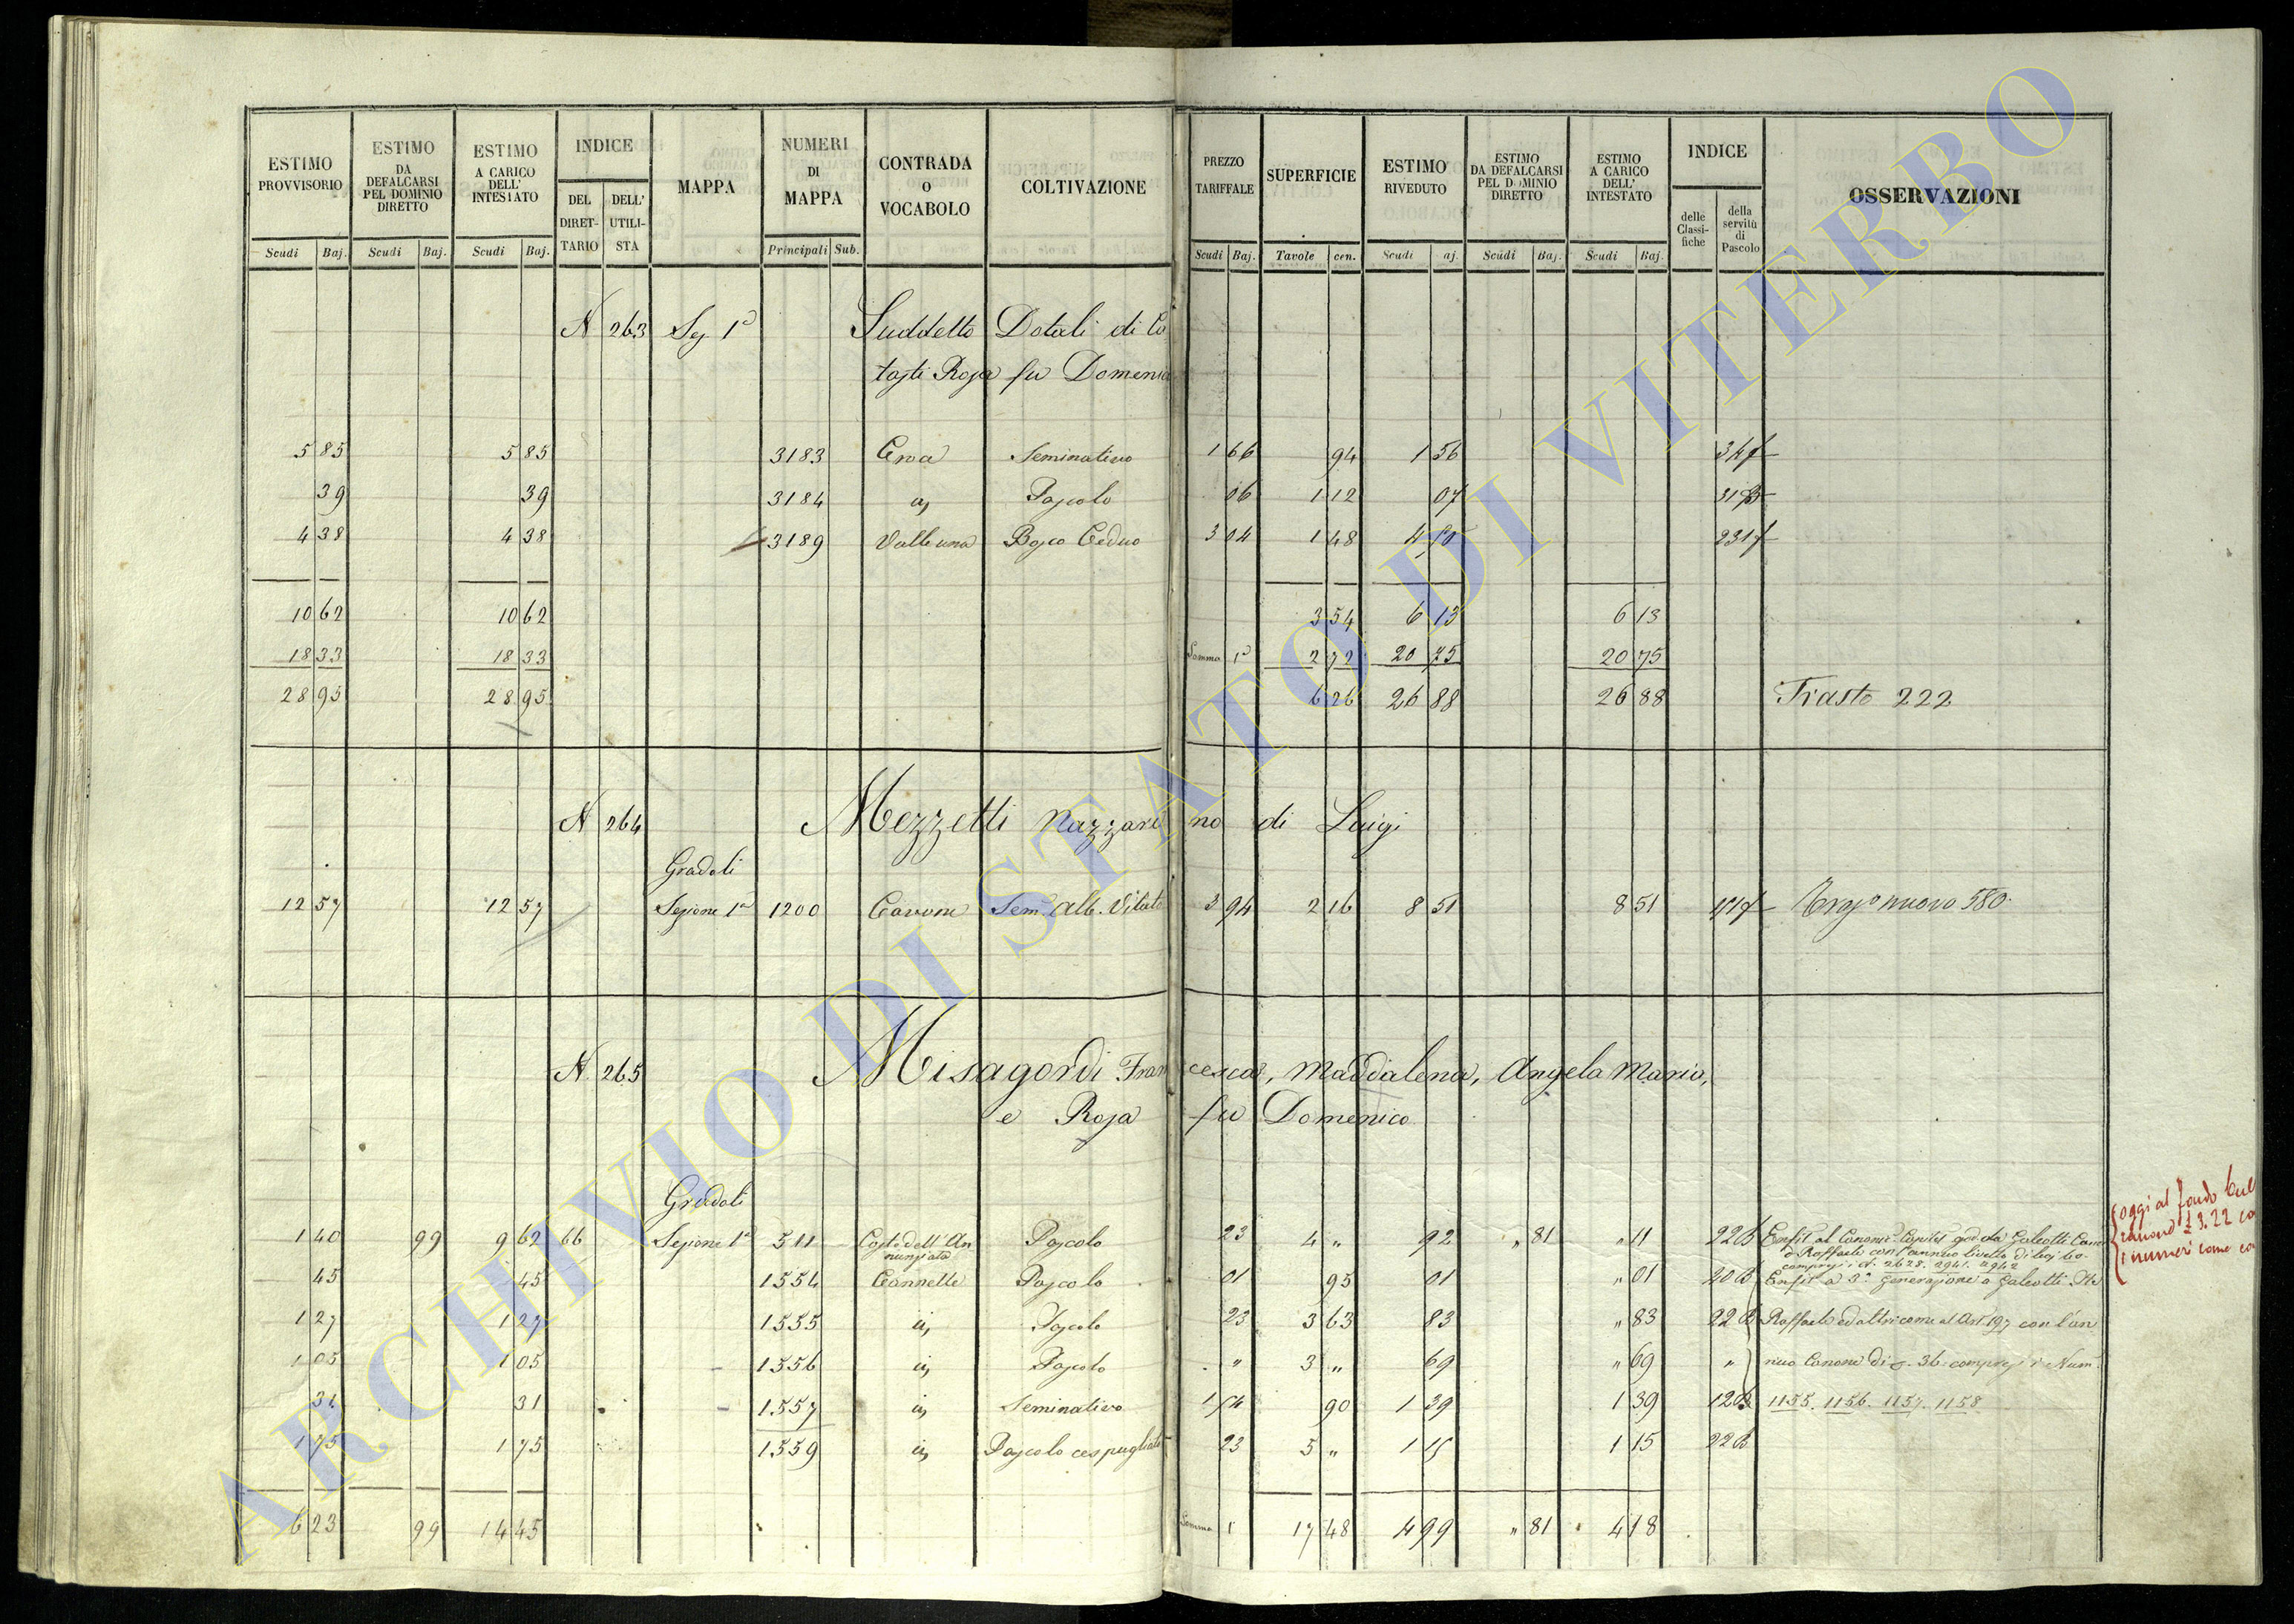 ESTIMO PROVVISORIO | ESTIMO DA DEFALCARSI PEL DOMINIO DIRETTO | ESTIMO A CARICO DELL' INTESTATO | INDICE | MAPPA | NUMERI DI MAPPA | CONTRADA O VOCABOLO | COLTIVAZIONE | PREZZO TARIFFALE | SUPERFICIE | ESTIMO RIVEDUTO | ESTIMO DA DEFALCARSI PEL DOMINIO DIRETTO | ESTIMO A CARICO DELL' INTESTATO | INDICE | OSSERVAZIONI
DEL DIRETTARIO | DELL' UTILISTA | delle Classifiche | della servitù di Pascolo
Scudi | Baj. | Scudi | Baj. | Scudi | Baj. | Principali | Sub. | Scudi | Baj. | Tavole | cen. | Scudi | aj. | Scudi | Baj. | Scudi | Baj.
N 263 Sez 1a Suddetto Dotali di Co
tasti Rosa fu Domenico
5 85 | 5 85 | 3183 | Seminativo | 1 66 | 94 | 1 56
39 | 39 | 3184 | Pascolo | 06 | 1 12 | 07
4 38 | 4 38 | 3189 | Bosco Ceduo | 3 04 | 1 48 | 4 50
10 62 | 10 62 | 3 54 | 6 13 | 6 13
18 33 | 18 33 | Somma 1a | 2 72 | 20 75 | 20 75
28 95 | 28 95 | 6 26 | 26 88 | 26 88 | Trasto 222
N 264 Mezzetti Nazzareno di Luigi
Gradoli
12 57 | 12 57 | Sezione 1a | 1200 | Cavone | Sem. Alb. Vitato | 3 94 | 2 16 | 8 51 | 8 51 | nuovo 580
N 265 Misagordi Francesca, Maddalena, Angela Maria,
e Rosa fu Domenico
Gradoli
1 40 | 99 | 9 62 | 66 | Sezione 1a | 511 | Costa dell' Annunziata | Pascolo | 23 | 4 " | 92 | " 81 | " 11 | 22B | Enfit al Canonic
di Raffaele con l'annuo livello di
compresi i N. 2628. 2941. 2942
45 | 45 | 1554 | Cannelle | Pascolo | 01 | 95 | 01 | " 01 | 20B | Enfit a 3a generazione a Galeotti
1 27 | 1 27 | 1555 | id. | Pascolo | 23 | 3 63 | 83 | " 83 | 22B | Raffaele ed altri come al Art 197 con l'an
1 05 | 1 05 | 1556 | id. | Pascolo | " | 3 " | 69 | " 69 | " | nuo Canone di 36 compresi i Num.
31 | 31 | 1557 | id. | Seminativo | 1 54 | 90 | 1 39 | 1 39 | 12B | 1155. 1156. 1157. 1158
1 75 | 1 75 | 1559 | id. | Pascolo cespugliato | 23 | 5 " | 1 15 | 1 15 | 22B
6 23 | 99 | 14 45 | Somma | 17 48 | 4 99 | " 81 | 4 18
oggi al fondo
canone 3.22
i numeri come
ARCHIVIO DI STATO DI VITERBO